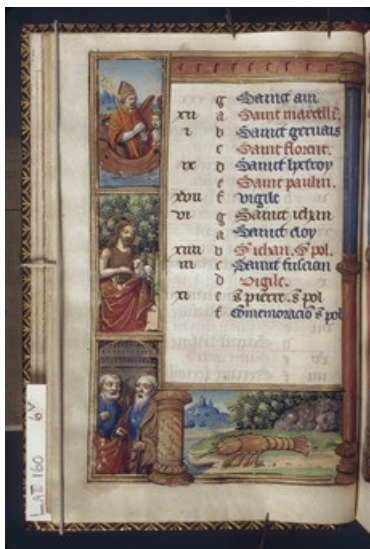 g Sainct auit
xii a Saint marcell.
i b Sainct geruais
c Saint florent.
ix d Sainct
e Saint paulin.
xvii f vigile
vi g Sainct iehan
a Sainct eloy
xiiii b S iehan. S pol.
iii c Sainct fuscian
d Vigile.
xi e s pierre. s pol
f Comemoracio s pol
LAT 160 6v